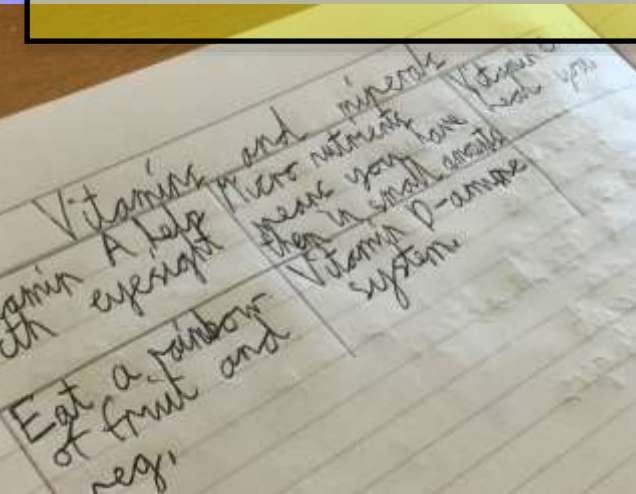 Vitamins and minerals
amin A help
eyesight
Micro nutrients
means you have
them in small amounts
Vitamin
heal you
Vitamin D-amune
system.
Eat a rainbow
of fruit and
veg.